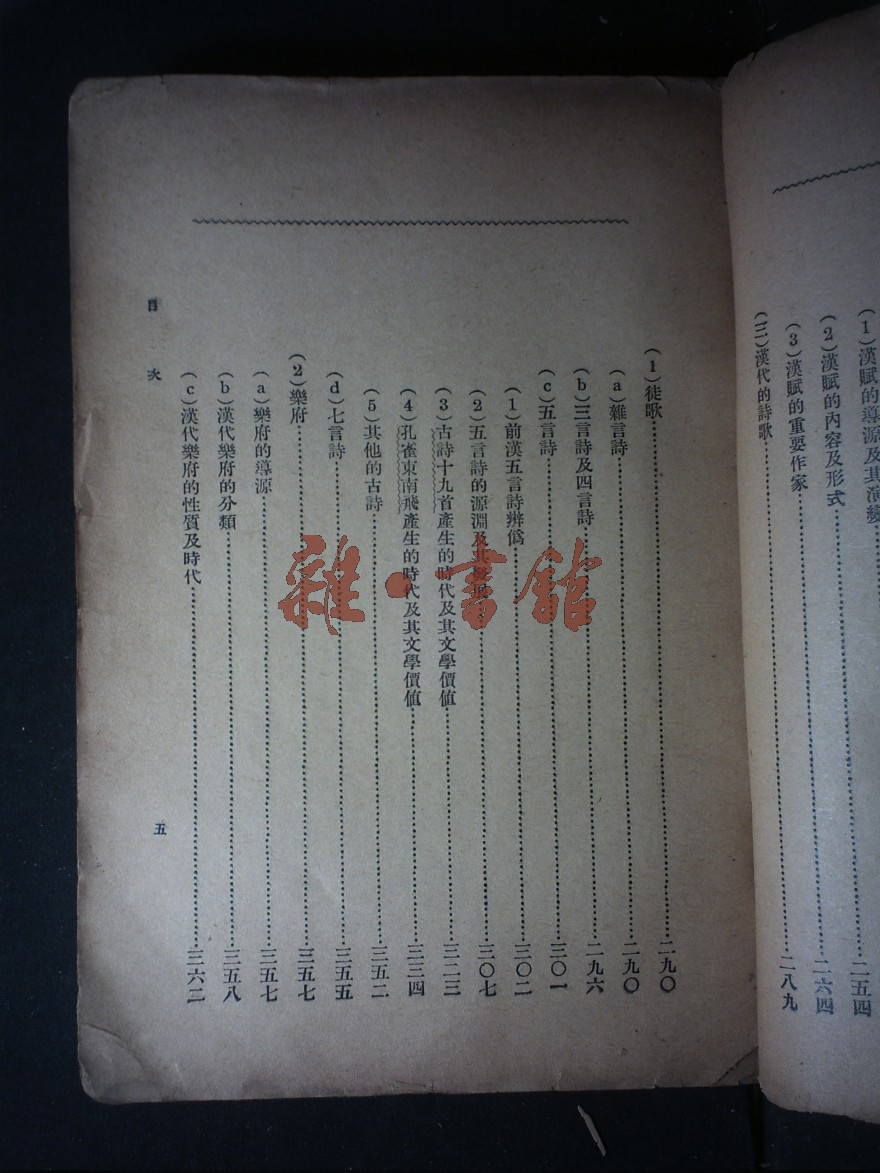 (1)漢賦的導源及其演變……二五四
(2)漢賦的內容及形式……二六四
(3)漢賦的重要作家……二八九
(三)漢代的詩歌
(1)徒歌……二九〇
(a)雜言詩……二九〇
(b)三言詩及四言詩……二九六
(c)五言詩……三〇一
(1)前漢五言詩辨僞……三〇二
(2)五言詩的源淵及其……三〇七
(3)古詩十九首產生的時代及其文學價値……三二三
(4)孔雀東南飛產生的時代及其文學價値……三三四
(5)其他的古詩……三五二
(d)七言詩……三五五
(2)樂府……三五七
(a)樂府的導源……三五七
(b)漢代樂府的分類……三五八
(c)漢代樂府的性質及時代……三六二
目次
五
雜·書館